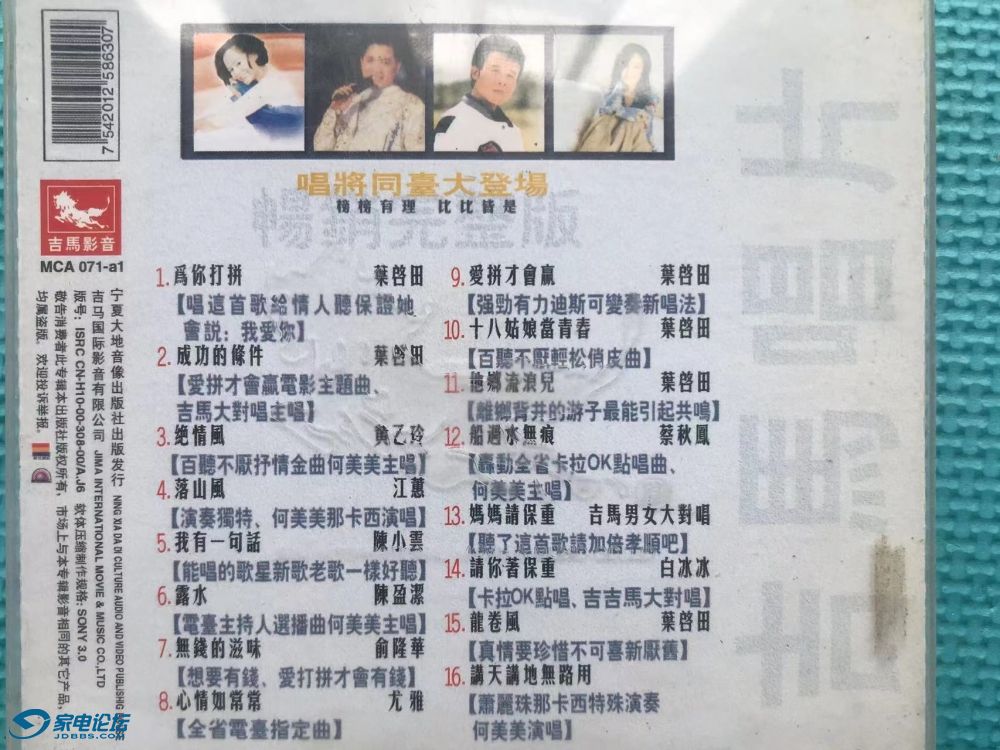 7 542012 586307
吉馬影音
MCA 071-a1
宁夏大地音像出版社出版发行 NING XIA DA DI CULTURE AUDIO AND VIDEO PUBLISHIG
吉马国际影音有限公司 JIMA INTERNATIONAL MOVIE & MUSIC CO.,LTD
版号：ISRC CN-H10-00-308-00/A.J6 软体压缩制作规格：SONY 3.0
敬告消费者此专辑本出版社版权所有，市场上与本专辑影音相同的其它产品，
均属盗版．欢迎投诉举报．
唱將同臺大登場
榜榜有理 比比皆是
暢銷完整版
1. 爲你打拼 葉啓田
【唱這首歌給情人聽保證她
會説：我愛妳】
2. 成功的條件 葉啓田
【愛拼才會贏電影主題曲、
吉馬大對唱主唱】
3. 绝情風 黄乙玲
【百聽不厭抒情金曲何美美主唱】
4. 落山風 江蕙
【演奏獨特、何美美那卡西演唱】
5. 我有一句話 陳小雲
【能唱的歌星新歌老歌一樣好聽】
6. 露水 陳盈潔
【電臺主持人選播曲何美美主唱】
7. 無錢的滋味 俞隆華
【想要有錢、愛打拼才會有錢】
8. 心情如常常 尤雅
【全省電臺指定曲】
9. 愛拼才會贏 葉啓田
【强勁有力迪斯可變奏新唱法】
10. 十八姑娘當青春 葉啓田
【百聽不厭輕松俏皮曲】
11. 他鄉流浪兒 葉啓田
【離鄉背井的游子最能引起共鳴】
12. 船過水無痕 蔡秋鳳
【轟動全省卡拉OK點唱曲、
何美美主唱】
13. 媽媽請保重 吉馬男女大對唱
【聽了這首歌請加倍孝順吧】
14. 請你著保重 白冰冰
【卡拉OK點唱、吉吉馬大對唱】
15. 龍卷風 葉啓田
【真情要珍惜不可喜新厭舊】
16. 講天講地無路用
【蕭麗珠那卡西特殊演奏
何美美演唱】
家电论坛
JDBBS.COM